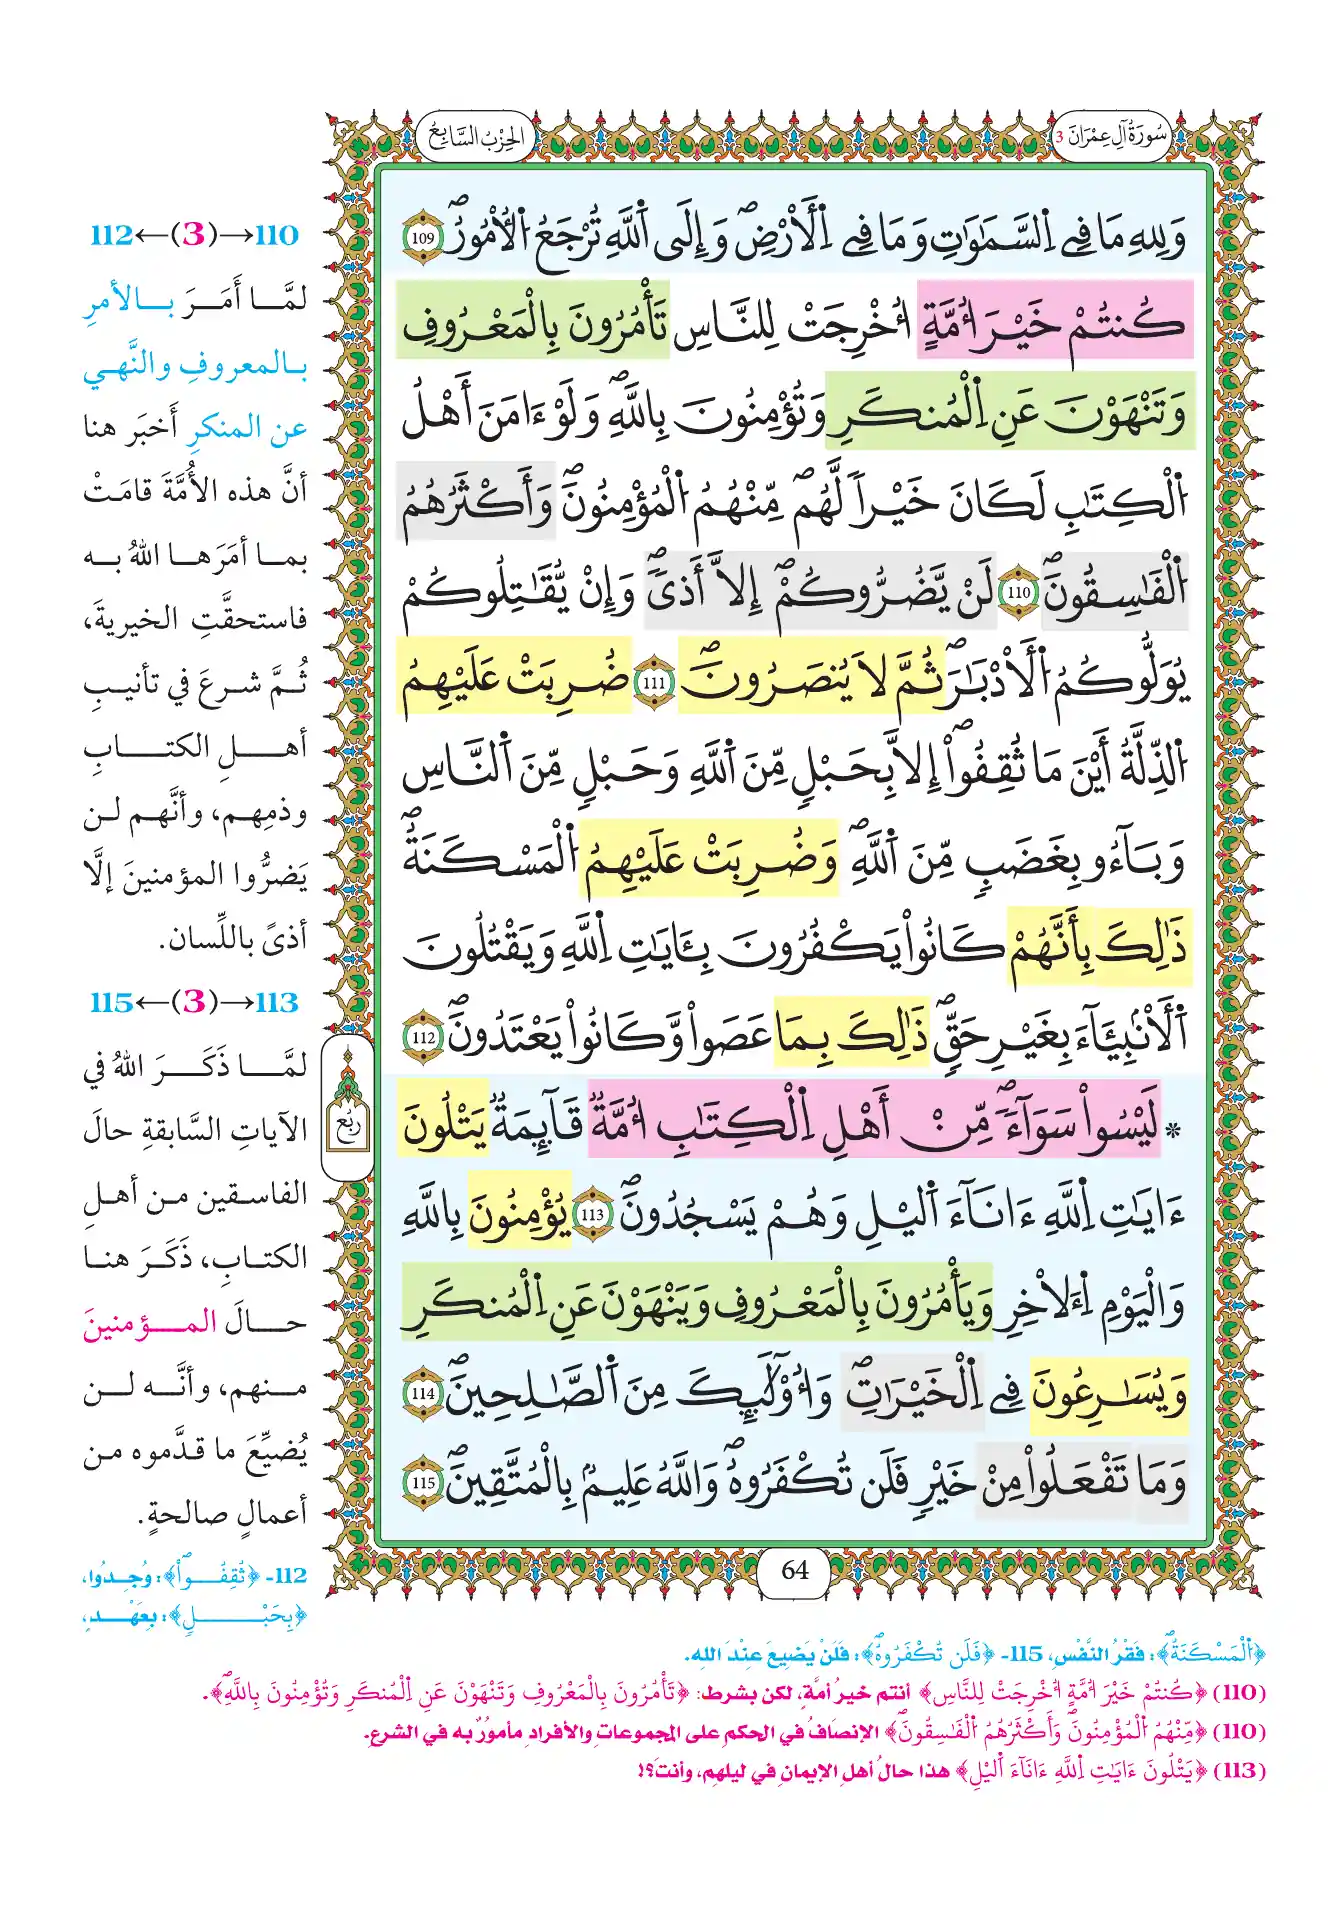 سُورَةُ آلِ عِمْرَانَ 3
الحِزْبُ السَّابِعُ
وَلِلهِ مَا فِي اِ۬لسَّمَٰوَٰتِ وَمَا فِي اِ۬لْأَرْضِۖ وَإِلَى اَ۬للَّهِ تُرْجَعُ اُ۬لْأُمُورُۖ 109
كُنتُمْ خَيْرَ أُمَّةٍ أُخْرِجَتْ لِلنَّاسِ تَأْمُرُونَ بِالْمَعْرُوفِ
وَتَنْهَوْنَ عَنِ اِ۬لْمُنكَرِ وَتُؤْمِنُونَ بِاللَّهِۖ وَلَوْ ءَامَنَ أَهْلُ
اُ۬لْكِتَٰبِ لَكَانَ خَيْراً لَّهُمۖ مِّنْهُمُ اُ۬لْمُؤْمِنُونَۖ وَأَكْثَرُهُمُ
اُ۬لْفَٰسِقُونَۖ 110 لَنْ يَّضُرُّوكُمْۖ إِلَّا أَذىٗۖ وَإِنْ يُّقَٰتِلُوكُمْ
يُوَلُّوكُمُ اُ۬لْأَدْبَٰرَۖ ثُمَّ لَا يُنصَرُونَۖ 111 ضُرِبَتْ عَلَيْهِمُ
اُ۬لذِّلَّةُ أَيْنَ مَا ثُقِفُواْۖ إِلَّا بِحَبْلٍ مِّنَ اَ۬للَّهِ وَحَبْلٍ مِّنَ اَ۬لنَّاسِ
وَبَآءُو بِغَضَبٍ مِّنَ اَ۬للَّهِۖ وَضُرِبَتْ عَلَيْهِمُ اُ۬لْمَسْكَنَةُۖ
ذَٰلِكَ بِأَنَّهُمْ كَانُواْ يَكْفُرُونَ بِـَٔايَٰتِ اِ۬للَّهِ وَيَقْتُلُونَ
اَ۬لْأَنۢبِيَآءَ بِغَيْرِ حَقٍّۖ ذَٰلِكَ بِمَا عَصَواْ وَّكَانُواْ يَعْتَدُونَۖ 112
* لَيْسُواْ سَوَآءٗۖ مِّنْ أَهْلِ اِ۬لْكِتَٰبِ أُمَّةٞ قَآئِمَةٞ يَتْلُونَ
ءَايَٰتِ اِ۬للَّهِ ءَانَآءَ اَ۬ليْلِ وَهُمْ يَسْجُدُونَۖ 113 يُؤْمِنُونَ بِاللَّهِ
وَالْيَوْمِ اِ۬لْأٓخِرِ وَيَأْمُرُونَ بِالْمَعْرُوفِ وَيَنْهَوْنَ عَنِ اِ۬لْمُنكَرِ
وَيُسَٰرِعُونَ فِي اِ۬لْخَيْرَٰتِۖ وَأُوْلَٰٓئِكَ مِنَ اَ۬لصَّٰلِحِينَۖ 114
وَمَا تَفْعَلُواْ مِنْ خَيْرٍ فَلَن تُكْفَرُوهُۖ وَاللَّهُ عَلِيمُۢ بِالْمُتَّقِينَۖ 115
ربع
64
110→(3)←112
لمَّا أَمَرَ بالأمرِ
بالمعروفِ والنَّهي
عن المنكرِ أَخبَر هنا
أنَّ هذه الأُمَّةَ قامَتْ
بما أمَرَها اللهُ به
فاستحقَّتِ الخيريةَ،
ثُمَّ شرعَ في تأنيبِ
أهلِ الكتابِ
وذمِهم، وأنَّهم لن
يَضرُّوا المؤمنينَ إلَّا
أذىً باللِّسان.
113→(3)←115
لمَّا ذَكَرَ اللهُ في
الآياتِ السَّابقةِ حالَ
الفاسقين من أهلِ
الكتابِ، ذَكَرَ هنا
حالَ المؤمنينَ
منهم، وأنَّه لن
يُضيِّعَ ما قدَّموه من
أعمالٍ صالحةٍ.
112- ﴿ثُقِفُواْۖ﴾: وُجِدُوا،
﴿بِحَبْلٍ﴾: بِعَهْدٍ،
﴿اُ۬لْمَسْكَنَةُۖ﴾: فَقْرُ النَّفْسِ، 115- ﴿فَلَن تُكْفَرُوهُۖ﴾: فَلَنْ يَضِيعَ عِنْدَ اللهِ.
(110) ﴿كُنتُمْ خَيْرَ أُمَّةٍ أُخْرِجَتْ لِلنَّاسِ﴾ أنتم خيرُ أمَّةٍ، لكن بشرط: ﴿تَأْمُرُونَ بِالْمَعْرُوفِ وَتَنْهَوْنَ عَنِ اِ۬لْمُنكَرِ وَتُؤْمِنُونَ بِاللَّهِۖ﴾.
(110) ﴿مِّنْهُمُ اُ۬لْمُؤْمِنُونَۖ وَأَكْثَرُهُمُ اُ۬لْفَٰسِقُونَۖ﴾ الإنصَافُ في الحكمِ على المجموعاتِ والأفرادِ مأمورٌ به في الشرعِ.
(113) ﴿يَتْلُونَ ءَايَٰتِ اِ۬للَّهِ ءَانَآءَ اَ۬ليْلِ﴾ هذا حالُ أهلِ الإيمانِ في ليلهم، وأنتَ؟!